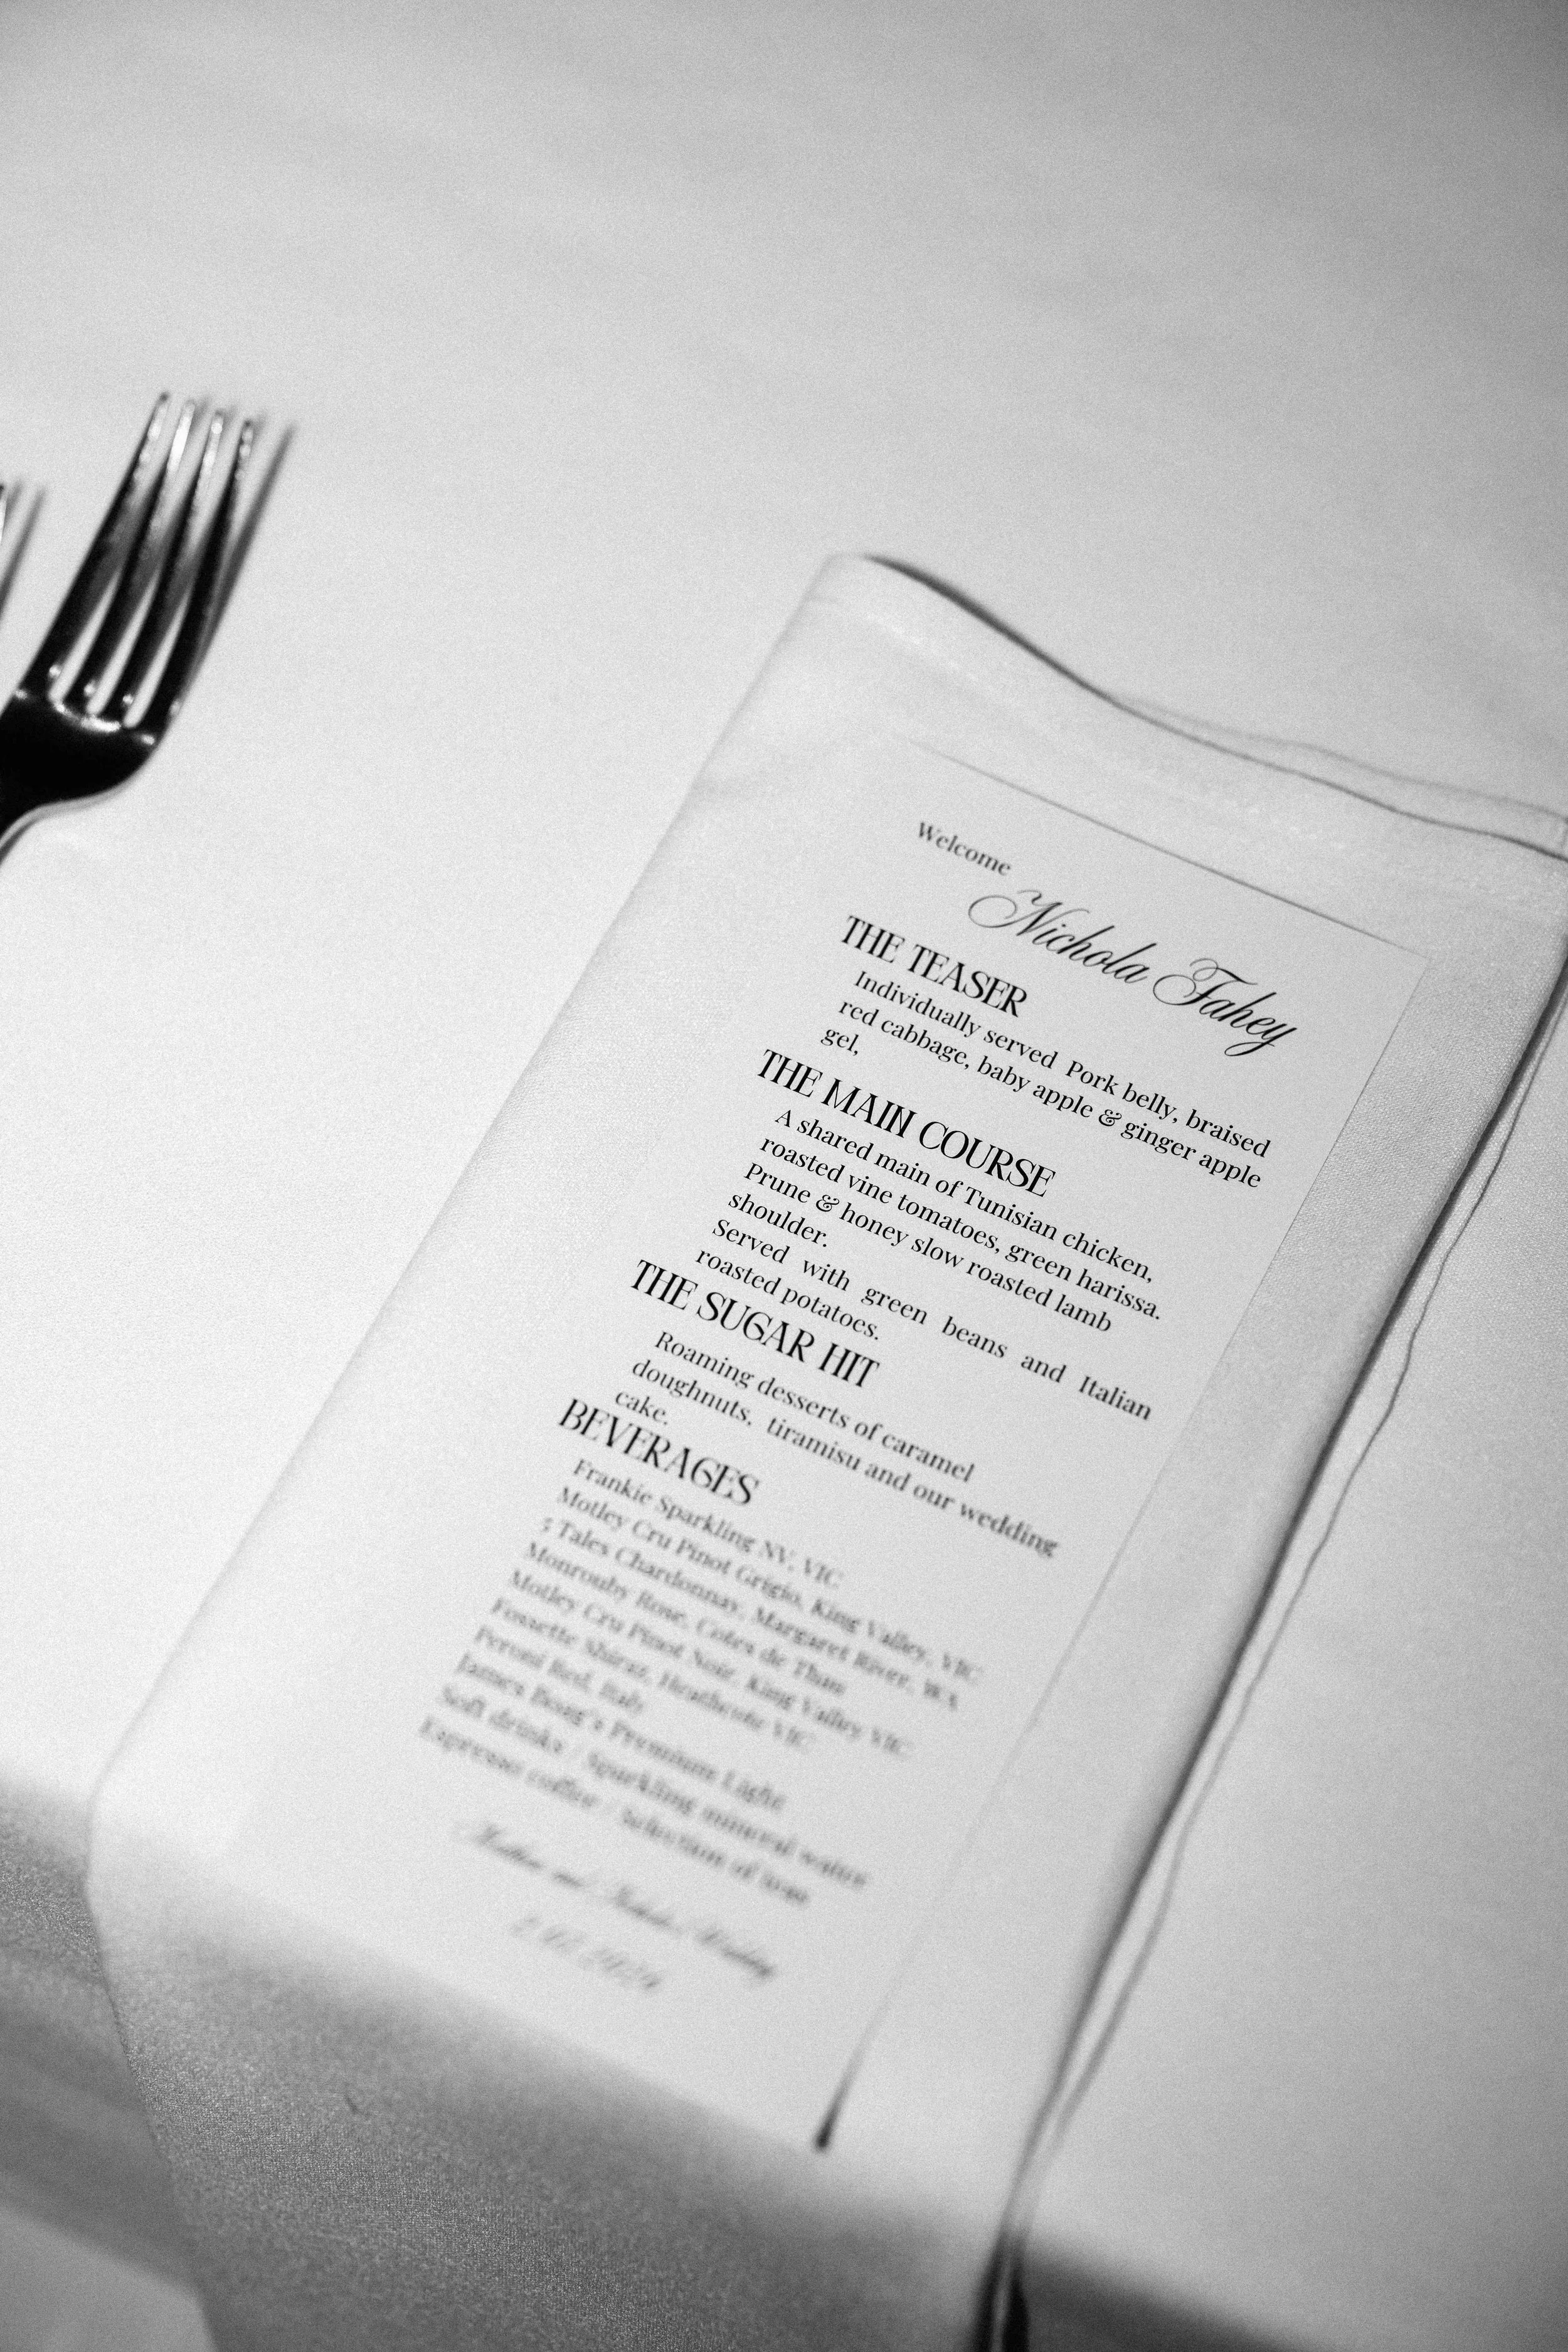 Welcome
Nichola Fahey
THE TEASER
Individually served Pork belly, braised
red cabbage, baby apple & ginger apple
gel,
THE MAIN COURSE
A shared main of Tunisian chicken,
roasted vine tomatoes, green harissa.
Prune & honey slow roasted lamb
shoulder.
Served with green beans and Italian
roasted potatoes.
THE SUGAR HIT
Roaming desserts of caramel
doughnuts, tiramisu and our wedding
cake.
BEVERAGES
Frankie Sparkling NV, VIC
Motley Cru Pinot Grigio, King Valley, VIC
5 Tales Chardonnay, Margaret River, WA
Monrouby Rose, Cotes de Thau
Motley Cru Pinot Noir, King Valley VIC
Fossette Shiraz, Heathcote VIC
Peroni Red, Italy
James Boag's Premium Light
Soft drinks / Sparkling mineral water
Espresso coffee / Selection of teas